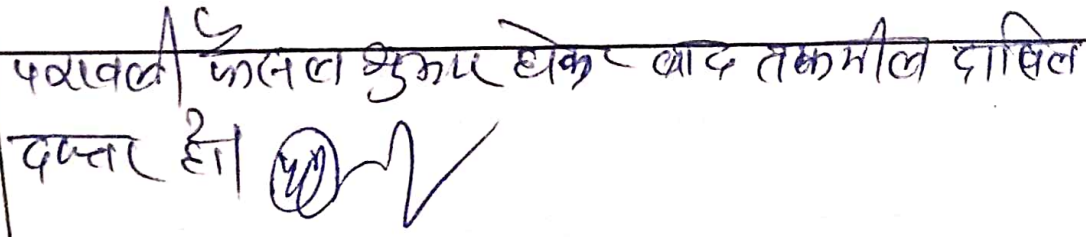 पत्रावली फैसल शुमार होकर बाद तकमील दाखिल
दफ्तर हो।